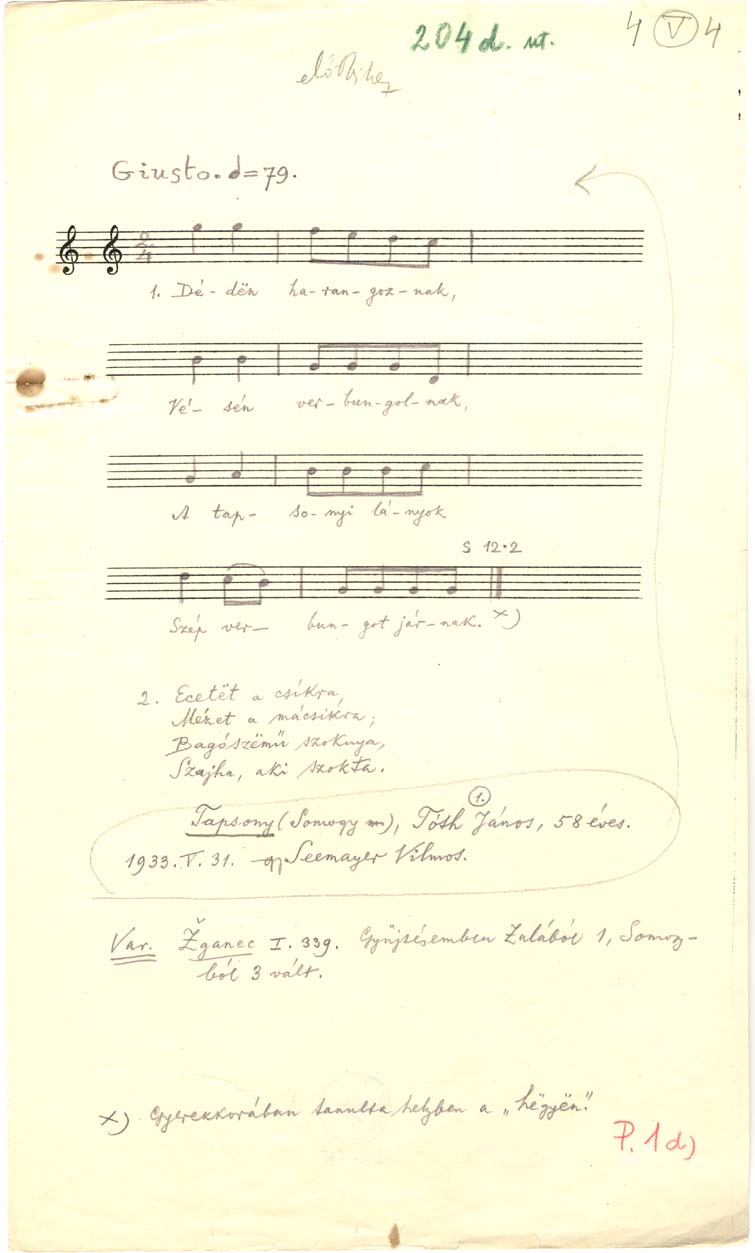 204 d. ut.
4 V 4
Giusto. = 79.
2 4
1. Dé- dën ha-ran-goz-nak,
Vé- sén ver-bun-gol-nak,
A tap- so-nyi lá-nyok
S 12·2
Szép ver- bun-got jár-nak. x)
2. Ecetët a csíkra,
Mézet a mácsikra;
Bagószëmű szoknya,
Szajha, aki szokta.
1.
Tapsony (Somogy m), Tóth János, 58 éves.
1933. V. 31. Seemayer Vilmos.
Var. Žganec I. 339. Gyűjtésemben Zalából 1, Somogy-
ból 3 vált.
x) Gyerekkorában tanulta helyben a „hëgyën".
P. 1 d)